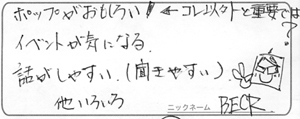 ポップがおもしろい! ←コレリクトと重要では?
イベントが気になる。
話がしやすい。(聞きやすい)
他いろいろ
ニックネーム BECR